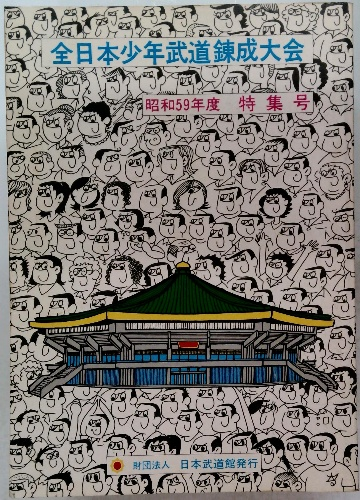 全日本少年武道錬成大会
昭和59年度 特集号
財団法人 日本武道館発行